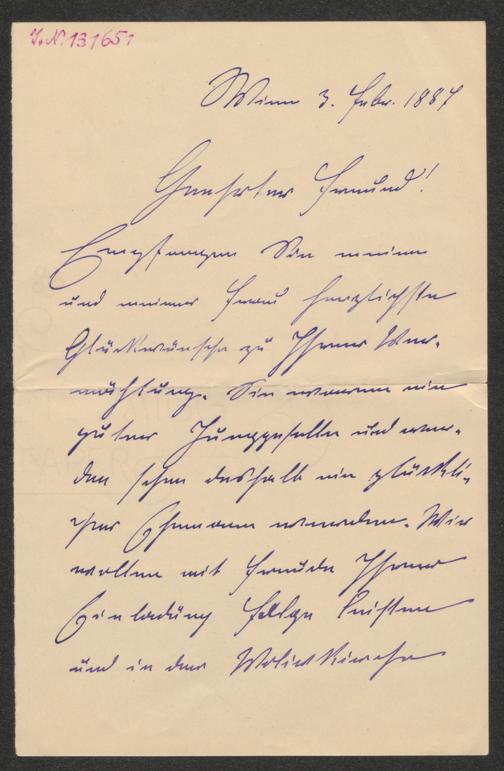 J. N. 131651
Wien 3. Febr. 1887
Geehrter Freund!
Empfangen Sie meine
und meiner Frau herzlichste
Glückwünsche zu Ihrer Ver-
mählung. Sie waren ein
guter Junggeselle und wer-
den schon deshalb ein glückli-
cher Ehemann werden. Wir
wollen mit Freude Ihrer
Einladung folge leisten
und in der Votivkirche